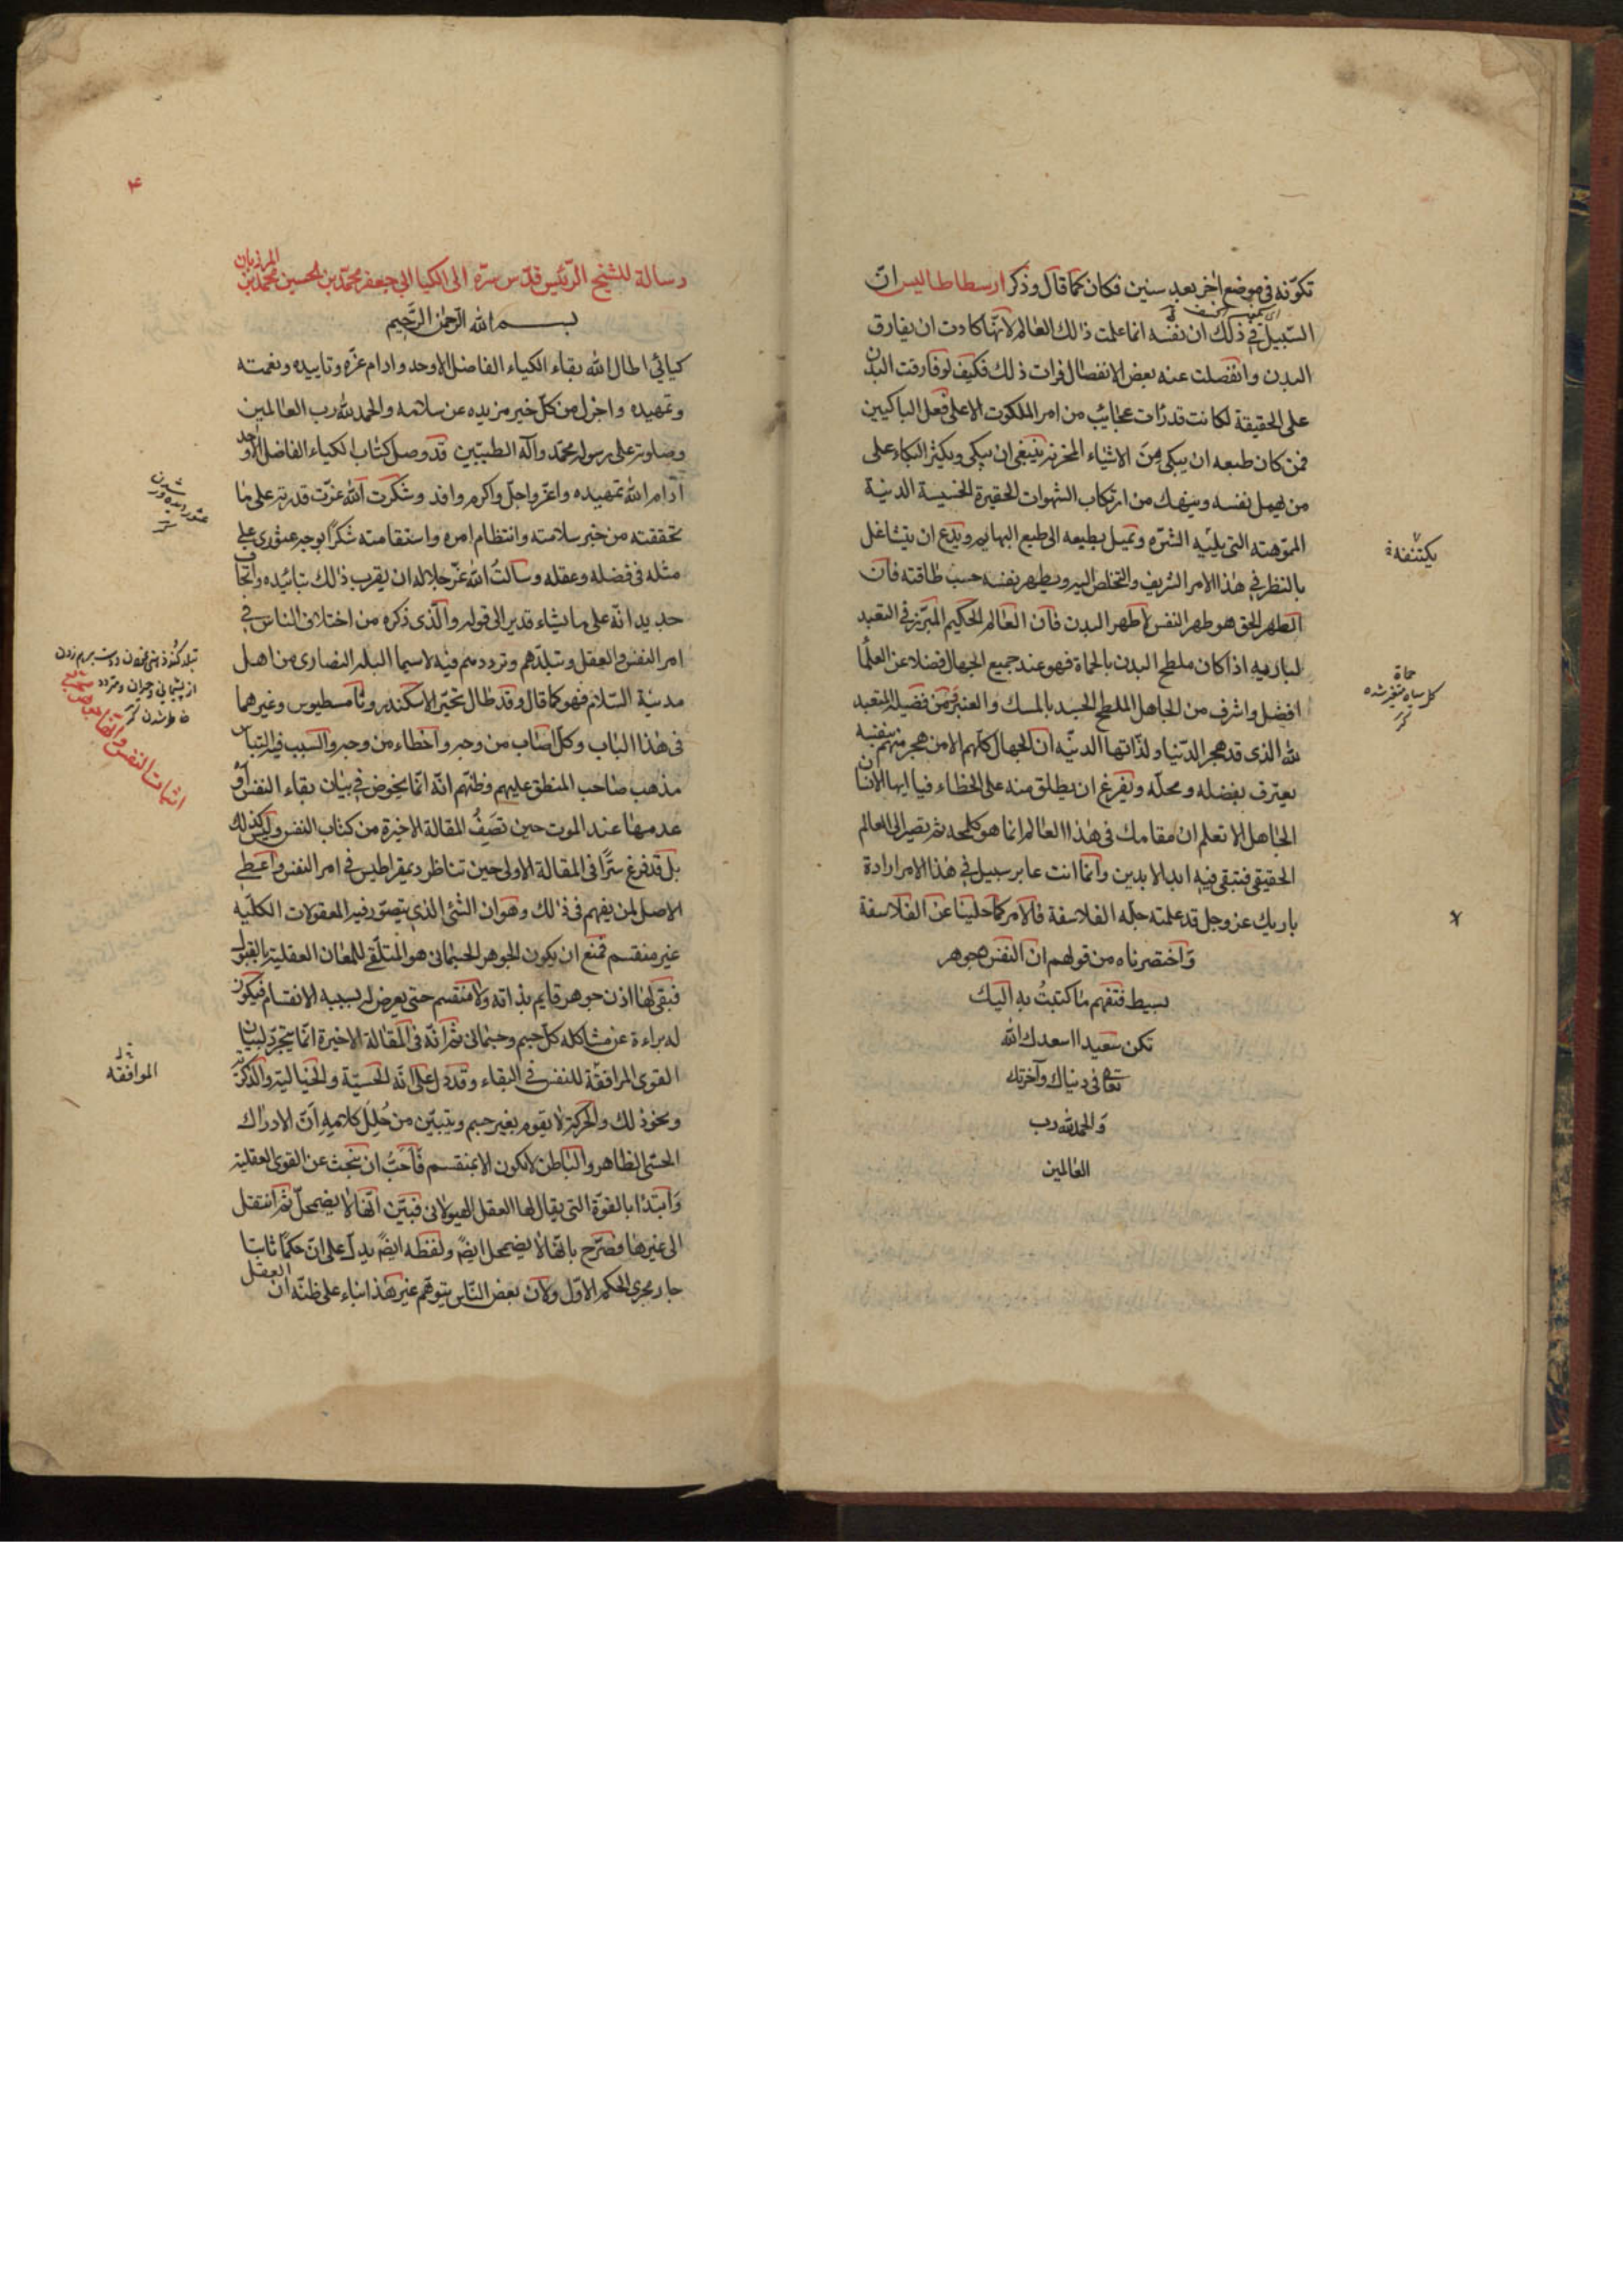 تكوّنه في موضع اخر بعد سنين فكان كما قال وذكر ارسطاطاليس انّ
السّبيل في ذلك ان نفسه انما علمت ذلك العالم لانّها كادت ان يفارق
البدن وانفصلت عنه بعض الانفصال فرات ذلك فكيف لو فارقت البدن
على الحقيقة لكانت قد رات عجائب من امر الملكوت الاعلى فعل الباكيين
فمن كان طبعه ان يبكى من الاشياء المحزنه ينبغي ان يبكى ويكثر البكاء على
من يهمل نفسه وينهك من ارتكاب الشهوات الحقيرة الخسيسة الدنية
المموّهة التي الشرّه وتميل بطبعه الى طبع البهائم ويدع ان يتشاغل
بالنظر في هذا الامر الشريف والتخلص اليه ويطهر نفسه حسب طاقته فان
الطهر الحق هو طهر النفس لا طهر البدن فان العالم الحكيم المبرّز في التعبد
لباريه اذا كان ملطخ البدن بالحماة فهو عند جميع الجهال فضلا عن العلما
افضل واشرف من الجاهل الملطخ الجسد بالمسك والعنبر فمن فضيلة المتعبد
لله الذى قد هجر الدّنيا ولذّاتها الدنيّه ان الجهال كلهم الا من هجر منهم بنفسه
يعترف بفضله ومحلّه ويفرغ ان يطلق منه على الخطاء فيا ايها الانسان
الجاهل الا تعلم ان مقامك في هذا العالم انما هو كلمحه ثم تصير الى العالم
الحقيقى فتبقى فيه ابد الابدين وانما انت عابر سبيل في هذا الامر ارادة
باريك عز وجل قد علمته جله الفلاسفة فالامر كما حلينا عن الفلاسفة
واختصرناه من قولهم ان النفس جوهر
بسيط فتفهم ما كتبتُ به اليك
تكن سعيدا اسعدك الله
تعالى في دنياك وآخرتك
والحمد لله رب
العالمين
يكتنفة
حماة
كل سياه متغير شده
۴
رسالة للشيخ الرّئيس قدّس سرّه الى الكيا ابي جعفر محمّد بن الحسين محمّد بن المرزبان
بسم الله الرّحمن الرّحيم
كيائي اطال الله بقاء الكياء الفاضل الاوحد وادام عزّه وتاييده ونعمته
وتمهيده واجزل من كلّ خير مزيده عن سلامه والحمد لله رب العالمين
وصلوته على رسوله محمّد وآله الطيبين قد وصل كتاب الكياء الفاضل الاوحد
ادام الله تمهيده واعزّ واجلّ واكرم وافد وشكرت الله عزّت قدرته على ما
تحققته من خبر سلامته وانتظام امره واستقامته شكرًا يوجبه عثورى على
مثله في فضله وعقله وسالتُ الله عزّ جلاله ان يقرب ذلك بتائيده
انّه على ما يشاء قدير الى قوله والّذى ذكره من اختلاف الناس في
امر النفس والعقل وتبلّدهم وترددهم فيه لاسيما البله النصارى من اهل
مدينة السّلام فهو كما قال وقد طال تحيّر الاسكندر وثامسطيوس وغيرهما
في هذا الباب وكلّ اصاب من وجه واخطاء من وجه والسّبب فيه التباس
مذهب صاحب المنطق عليهم وظنّهم انّه انّما يخوض في بيان بقاء النفس او
عدمها عند الموت حين تصيفُ المقالة الاخيرة من كتاب النفس وليس كذلك
بل قد فرغ سرًّا في المقالة الاولى حين تناظر ديمقراطيس في امر النفس واعطى
الاصل لمن يفهم في ذلك وهو ان الشّئ الذى يتصوّر فيه المعقولات الكلّيه
غير منقسم فمنع ان يكون الجوهر الجسمانى هو المتلقّى للمعان العقلية بالقبول
فبقى لها اذن جوهر قايم بذاته ولا منقسم حتى يعرض له بسببه الانقسام فيكون
له براءة عن مشاكله كل جسم وجسمانى ثم انّه في المقالة الاخيرة انّما يتجرّد لبيان
القوى المرافقة للنفس في البقاء وقد دل على انّه الحسيّة والخيالية والذكرية
ونحو ذلك والحركة لا يقوم بغير جسم ويتبيّن من جليل كلاميه ان الادراك
الحسّى الظاهر والباطن لا يكون الا بمنقسم فاحبّ ان يبحث عن القوى العقلية
وابتدا بالقوة التي يقال لها العقل الهيولانى فبيّن انّها لا يضمحلّ ثم انتقل
الى غيرها فصرّح بانّها لا يضمحل ايضً ولفظه ايضً يدلّ على ان حكمًا ثابتا
جار مجرى الحكم الاوّل ولان بعض النّاس يتوهّم غير هذا بناء على ظنّه ان العقل
الموافقه